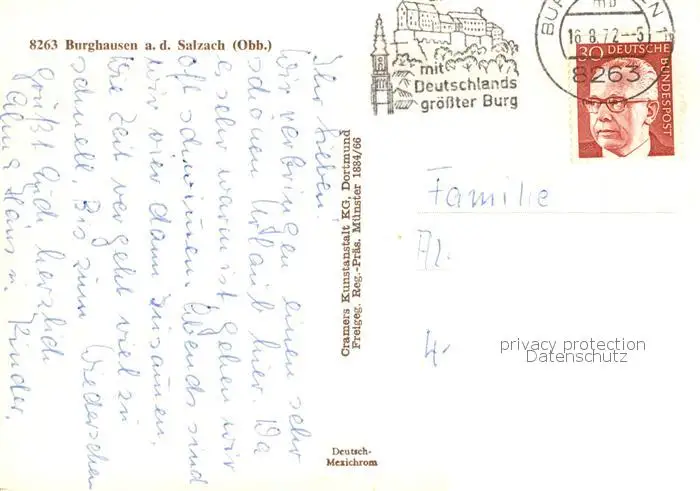 8263 Burghausen a. d. Salzach (Obb.)
Ihr Lieben!
Wir verbringen einen sehr
schönen Urlaub hier. Da
es sehr warm ist gehen wir
oft schwimmen. Abends sind
wir vier dann zusammen,
die Zeit vergeht viel zu
schnell. Bis zum Wiedersehen
grüßt Euch herzlich
Hans u. Kinder.
Cramers Kunstanstalt KG, Dortmund
Freigeg. Reg.-Präs. Münster 1884/66
Deutsch-
Mexichrom
mit
Deutschlands
größter Burg
BUR
EN
mb
16.8.72-5
8263
30 DEUTSCHE
BUNDESPOST
Familie
privacy protection
Datenschutz